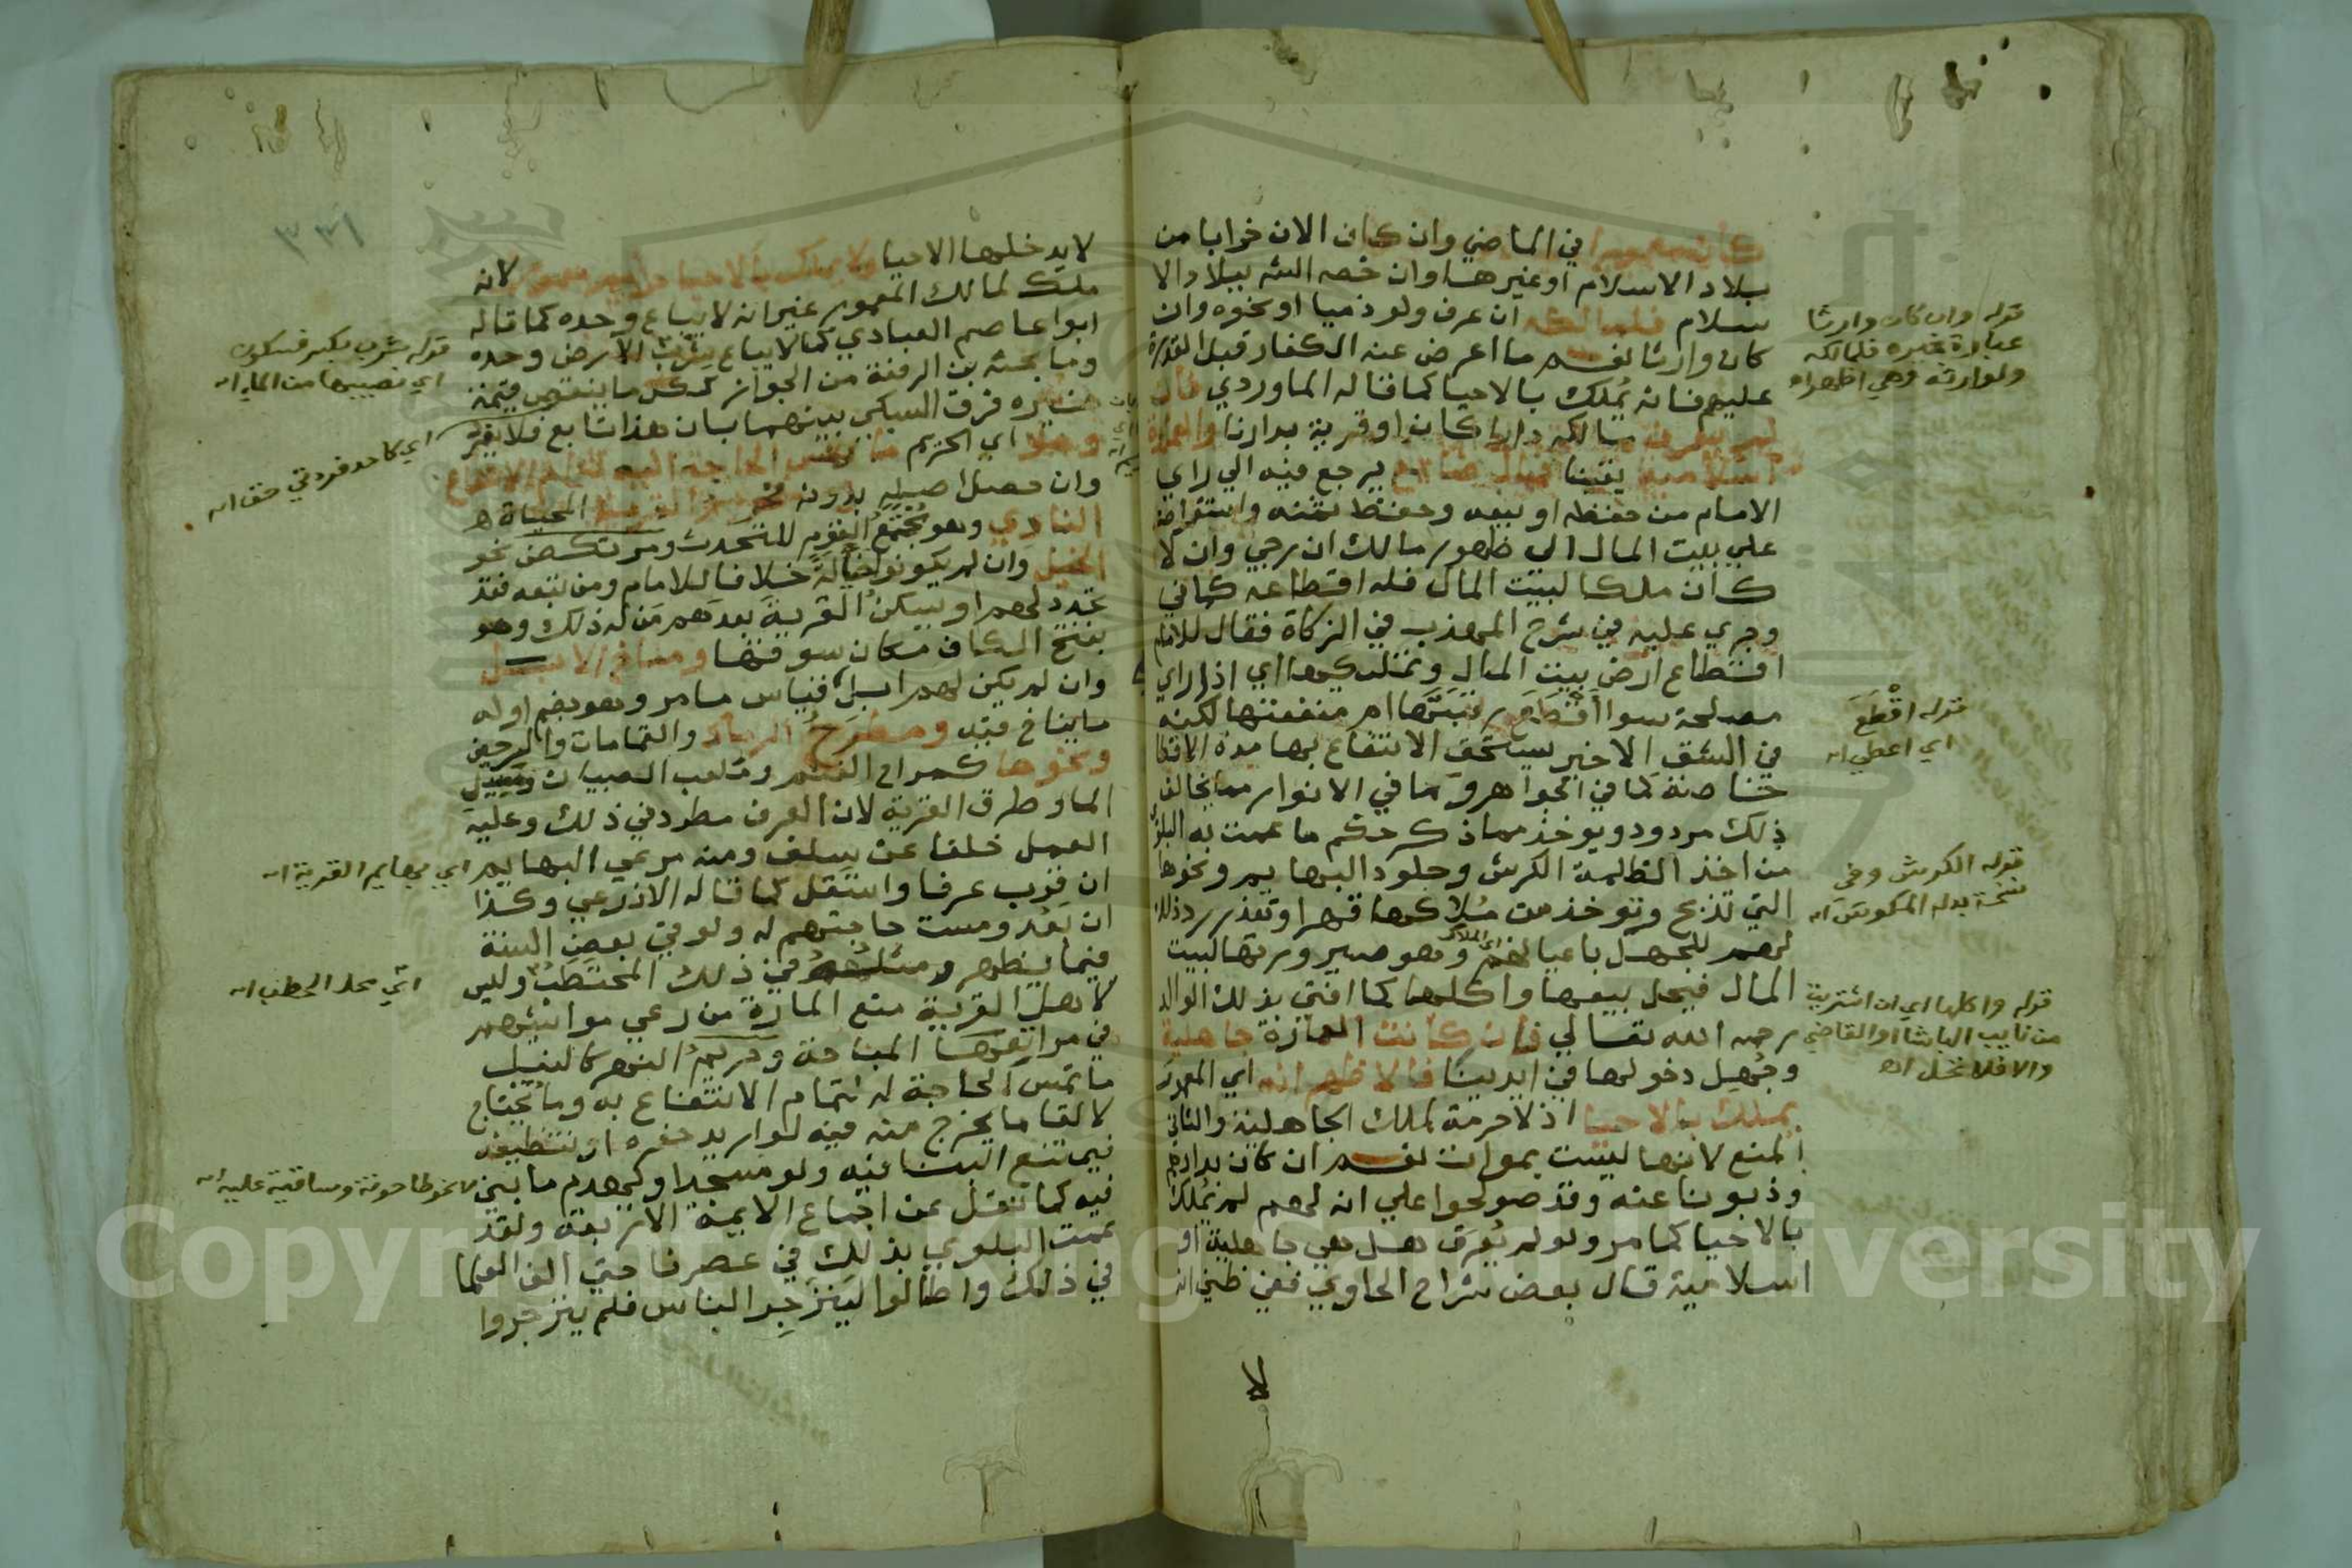 كان معمورا في الماضي وان كان الان خرابا من
بلاد الاسلام او غيرها وان خصه الشه ببلاد الا
سلام فلمالكه ان عرف ولو ذميا او نحوه وان
كان وارثا نعم ما اعرض عنه الكفار قبل القدرة
عليهم فانه يُملك بالاحيا كما قاله الماوردي فان
لم يعرف مالكه دارا كان او قرية بدارنا والعمارة
اسلامية يقينا فمال ضائع يرجع فيه الي راي
الامام من حفظه او بيعه وحفظ ثمنه واستقراضه
علي بيت المال الي ظهور مالك ان رجي وان لا
كان ملكا لبيت المال فله اقطاعه كما في
وجري عليه في شرح المهذب في الزكاة فقال للامام
اقطاع ارض بيت المال وتمليكها اي اذا راي
مصلحة سوا اقْطَعَ رقبتها ام منفعتها لكنه
في الشق الاخير يستحق الانتفاع بها مدة الاقطا
خاصة كما في الجواهر وما في الانوار مما يخالف
ذلك مردود ويوخذ مما ذكر حكم ما عمت به البلوي
من اخذ الظلمة الكرش وجلود البهايم ونحوها
التي تذبح وتوخذ من مُلاكها قهرا وتعذر رد ذلك
لهم للجهل باعيانهم اي الملاك وهو صيرورتها لبيت
المال فيحل بيعها واكلها كما افتي بذلك الوالد
رحمه الله تعالي فان كانت العمارة جاهلية
وجُهِل دخولها في ايدينا فالاظهر انه اي المعمور
يملك بالاحيا اذ لا حرمة لملك الجاهلية والثاني
المنع لانها ليست بموات نعم ان كان بدارهم
وذبونا عنه وقد صولحوا علي انه لهم لم يُملك
بالاحيا كما مر ولو لم يُعرف هل هي جاهلية او
اسلامية قال بعض شراح الحاوي ففي ظني انه
لا
قوله وان كان وارثا
عبارة غيره فلمالكه
ولوارثه وهي اظهر اه
قوله اقْطَعَ
اي اعطي اه
قوله الكرش وفي
نسخة بدله المكوس اه
قوله واكلها اي ان اشتريت
من نايب الباشا او القاضي
والا فلا تحل اه
٣٣١
لا يدخلها الاحيا ولا يملك بالاحيا حريم معمور لانه
ملك لمالك المعمور غير انه لا يباع وحده كما قاله
ابوا عاصم العبادي كما لا يباع شِرْبُ الارض وحده
وما بحثه بن الرفعة من الجواز ككل ما ينقص قيمة
غيره فرق السبكي بينهما بان هذا تابع فلا يفرد
وهو اي الحريم ما تمس الحاجة اليه لتمام الانتفاع
وان حصل اصله بدونه فحريم القرية المحياة
النادي وهو مجتمع القوم للتحدث ومرتكض نحو
الخيل وان لم يكونوا خيالة خلافا للامام ومن تبعه فقد
تجدد لهم او يسكن القرية بعدهم مَن له ذلك وهو
بفتح الكاف مكان سوقها ومناخ الابل
وان لم يكن لهم ابل قياس ما مر وهو بضم اوله
ما يناخ فيه ومطرَحُ الرماد والقمامات والسرجين
ونحوها كمراح الغنم وملعب الصبيان ومسيل
الما وطرق القرية لان العرف مطرد في ذلك وعليه
العمل خلفا عن سلف ومنه مرعي البهايم
ان قرب عرفا واستقل كما قاله الاذرعي وكذا
ان بَعُد ومست حاجتهم له ولو في بعض السنة
فيما يظهر ومثله في ذلك المحتطَبُ وليس
لاهل القرية منع المارة من رعي مواشيهم
في مراتعها المباحة وحريمُ النهر كالنيل
ما تمس الحاجة له لتمام الانتفاع به وما يحتاج
لالقا ما يخرج منه فيه لو اريد حفره او تنظيفه
فيمتنع البنا فيه ولو مسجدا ويهدم ما بني
فيه كما نقل عن اجماع الايمة الاربعة ولقد
عمت البلوي بذلك في عصرنا حتي الف العلما
في ذلك واطالوا ليَنزجِر الناس فلم ينزجروا
قوله شرب بكسر فسكون
اي نصيبها من الما اه
اي كاحد فردتي خف اه
اي بهايم القرية اه
اي محل الحطب اه
نحو طاحونة وساقية عليه اه
Copyright © King Saud University